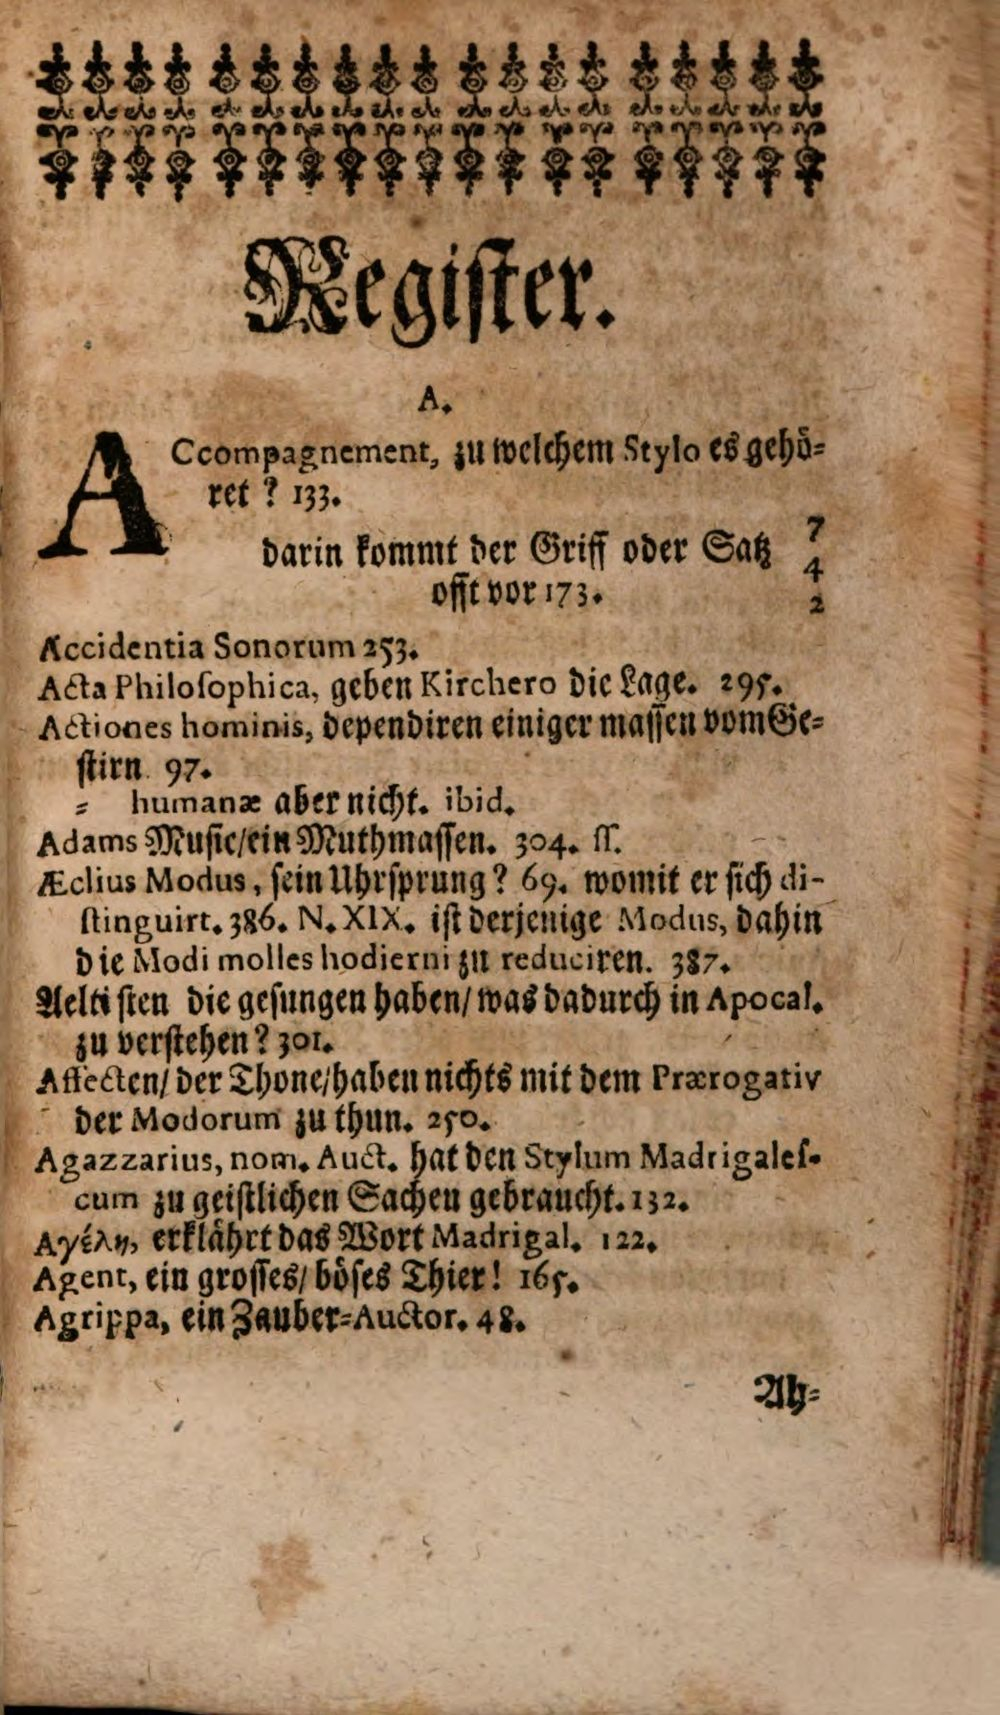 Regiſter.
A.
ACcompagnement, zu welchem Stylo es gehö⸗
ret ? 133.
darin kommt der Griff oder Satz 7
4
offt vor 173. 2
Accidentia Sonorum 253.
Acta Philoſophica, geben Kirchero die Lage. 295.
Actiones hominis, dependiren einiger maſſen vom Ge⸗
ſtirn 97.
⸗ humanæ aber nicht. ibid.
Adams Muſic/ ein Muthmaſſen. 304. ſſ.
Æclius Modus, ſein Uhrſprung? 69. womit er ſich di-
ſtinguirt. 386. N. XIX. iſt derjenige Modus, dahin
die Modi molles hodierni zu reduciren. 387.
Aeltiſten die geſungen haben/ was dadurch in Apocal.
zu verſtehen? 301.
Affecten/ der Thone/ haben nichts mit dem Prærogativ
der Modorum zu thun. 250.
Agazzarius, nom. Auct. hat den Stylum Madrigaleſ-
cum zu geiſtlichen Sachen gebraucht. 132.
Αγέλη, erklährt das Wort Madrigal. 122.
Agent, ein groſſes/ böſes Thier! 165.
Agrippa, ein Zauber⸗Auctor. 48.
Ah⸗